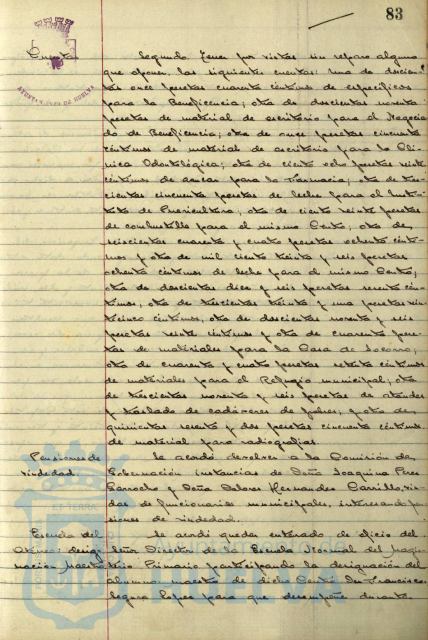 83
AYUNTAMIENTO DE HUELVA
Cuentas
Segundo tener por vistas sin reparo alguno
que oponer, las siguientes cuentas: una de doscien-
tas once pesetas cuarenta céntimos de específicos
para la Beneficencia; otra de doscientas noventa
pesetas de material de escritorio para el Negocia
do de Beneficencia; otra de once pesetas cincuenta
céntimos de material de escritorio para la Clí-
nica Odontológica; otra de ciento ocho pesetas veinte
céntimos de para la Farmacia; otra de tres-
cientas cincuenta pesetas de leche para el Insti-
tuto de Puericultura; otra de ciento veinte pesetas
de combustible para el mismo Centro; otra de
seiscientas cuarenta y cuatro pesetas ochenta cénti-
mos y otra de mil ciento treinta y seis pesetas
ochenta céntimos de leche para el mismo Centro;
otra de doscientas diez y seis pesetas sesenta cén-
timos; otra de trescientas treinta y una pesetas vein-
ticinco céntimos, otra de doscientas noventa y seis
pesetas veinte céntimos y otra de cuarenta pese-
tas de materiales para la Casa de Socorro;
otra de cuarenta y cuatro pesetas setenta céntimos
de materiales para el Refugio municipal; otra
de trescientas noventa y seis pesetas de
y traslado de cadáveres de pobres; y otra de
quinientas sesenta y dos pesetas cincuenta céntimos
de material para radiografías.
Pensiones de
viudedad
Se acordó devolver a la Comisión de
Gobernación instancias de Doña Joaquina Perez
Barrocho y Doña Dolores Hernandez Carrillo, viu-
das de funcionarios municipales, interesando pen-
siones de viudedad.
Escuela del
desig-
nación maestro
Se acordó quedar enterado de oficio del
Señor Director de la Escuela Normal del Magis-
terio Primario participando la designación del
alumno maestro de dicho Centro Don Francisco
Segura Lopez para que desempeñe durante